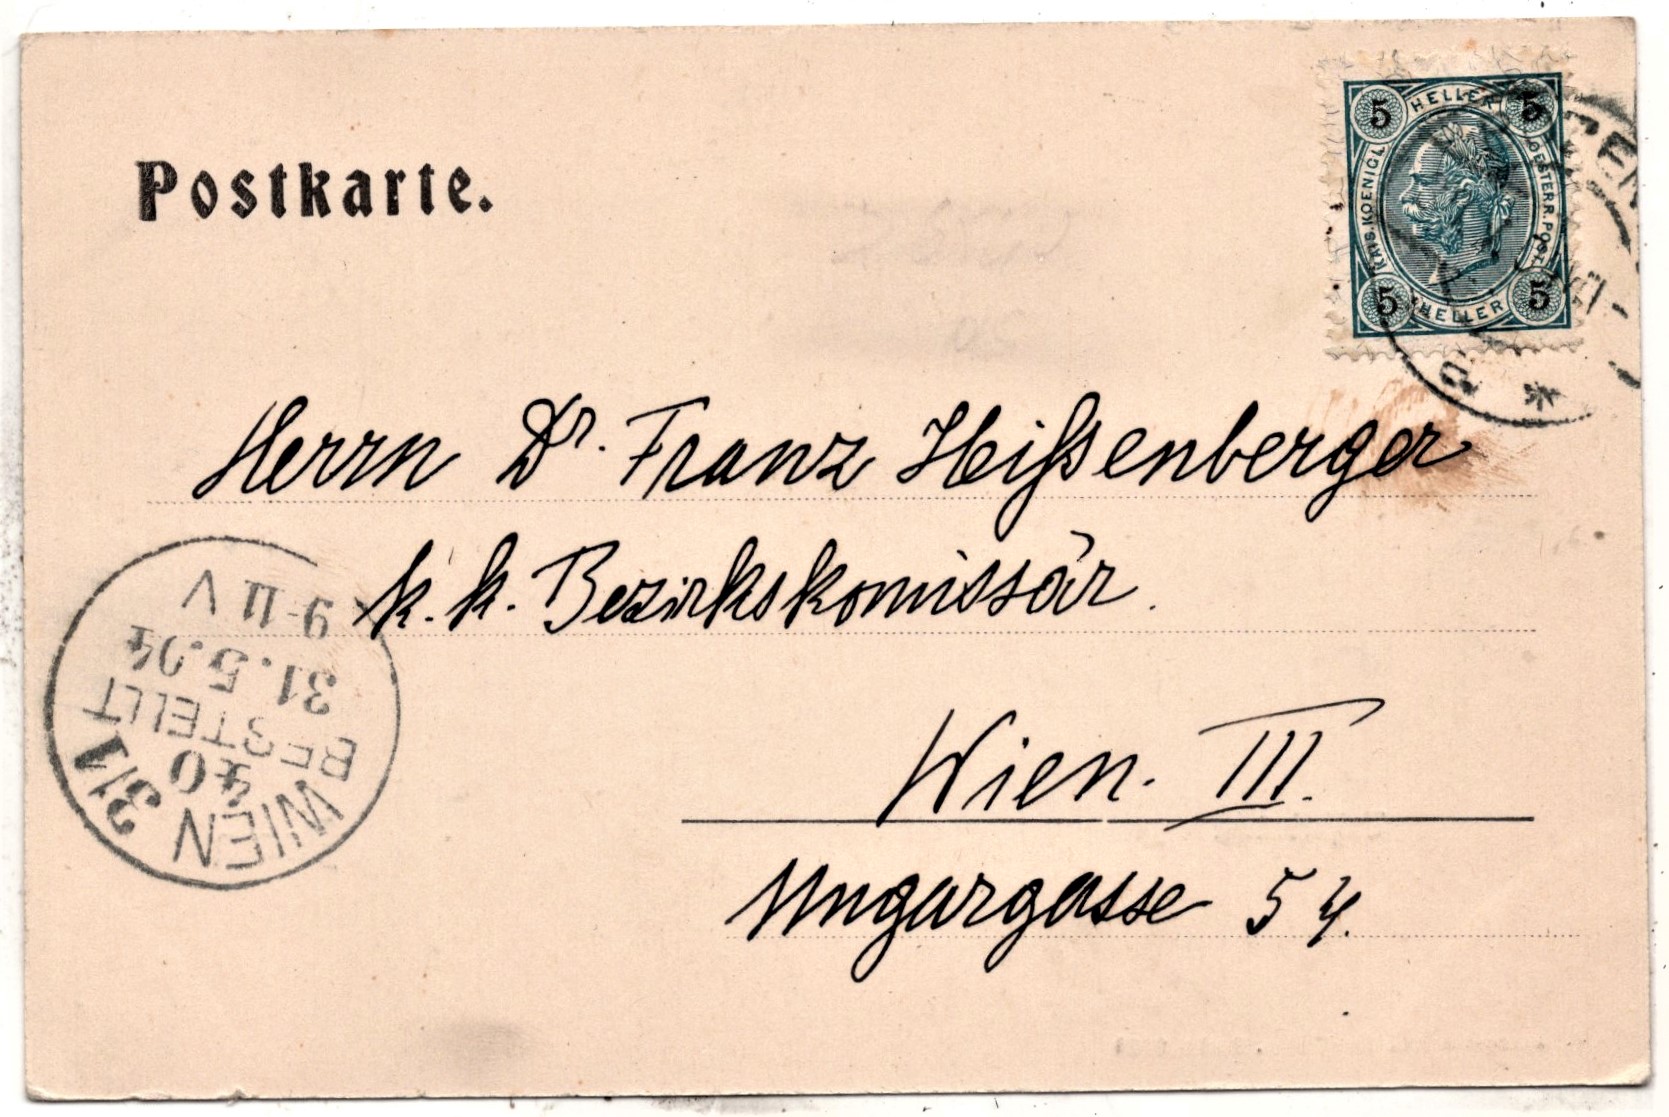 Postkarte.
5 HELLER 5
KAIS. KOENIGL. OESTERR. POST.
5 HELLER 5
Herrn Dr. Franz Heißenberger
k. k. Bezirkskomissär.
Wien. III.
Ungargasse 54.
WIEN 3/1
40
BESTELLT
31.5.04
9-11 V